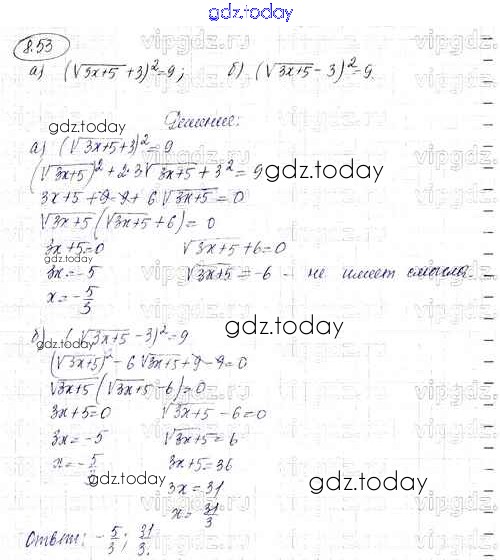 gdz.today
8.53
а) (√3x+5 + 3)² = 9; б) (√3x+5 - 3)² = 9
Решение:
gdz.today
а) (√3x+5 + 3)² = 9
(√3x+5)² + 2·3√3x+5 + 3² = 9
gdz.today
3x+5+9-9+6√3x+5 = 0
√3x+5(√3x+5+6) = 0
3x+5=0 √3x+5+6=0
gdz.today
3x=-5 √3x+5 = -6 - не имеет смысла.
x = -5/3
gdz.today
б) (√3x+5 - 3)² = 9
(√3x+5)² - 6√3x+5 + 9 - 9 = 0
√3x+5(√3x+5-6) = 0
3x+5=0 √3x+5-6=0
3x=-5 √3x+5=6
x=-5/3 3x+5=36
gdz.today
3x=31
x=31/3
gdz.today
Ответ: -5/3; 31/3.